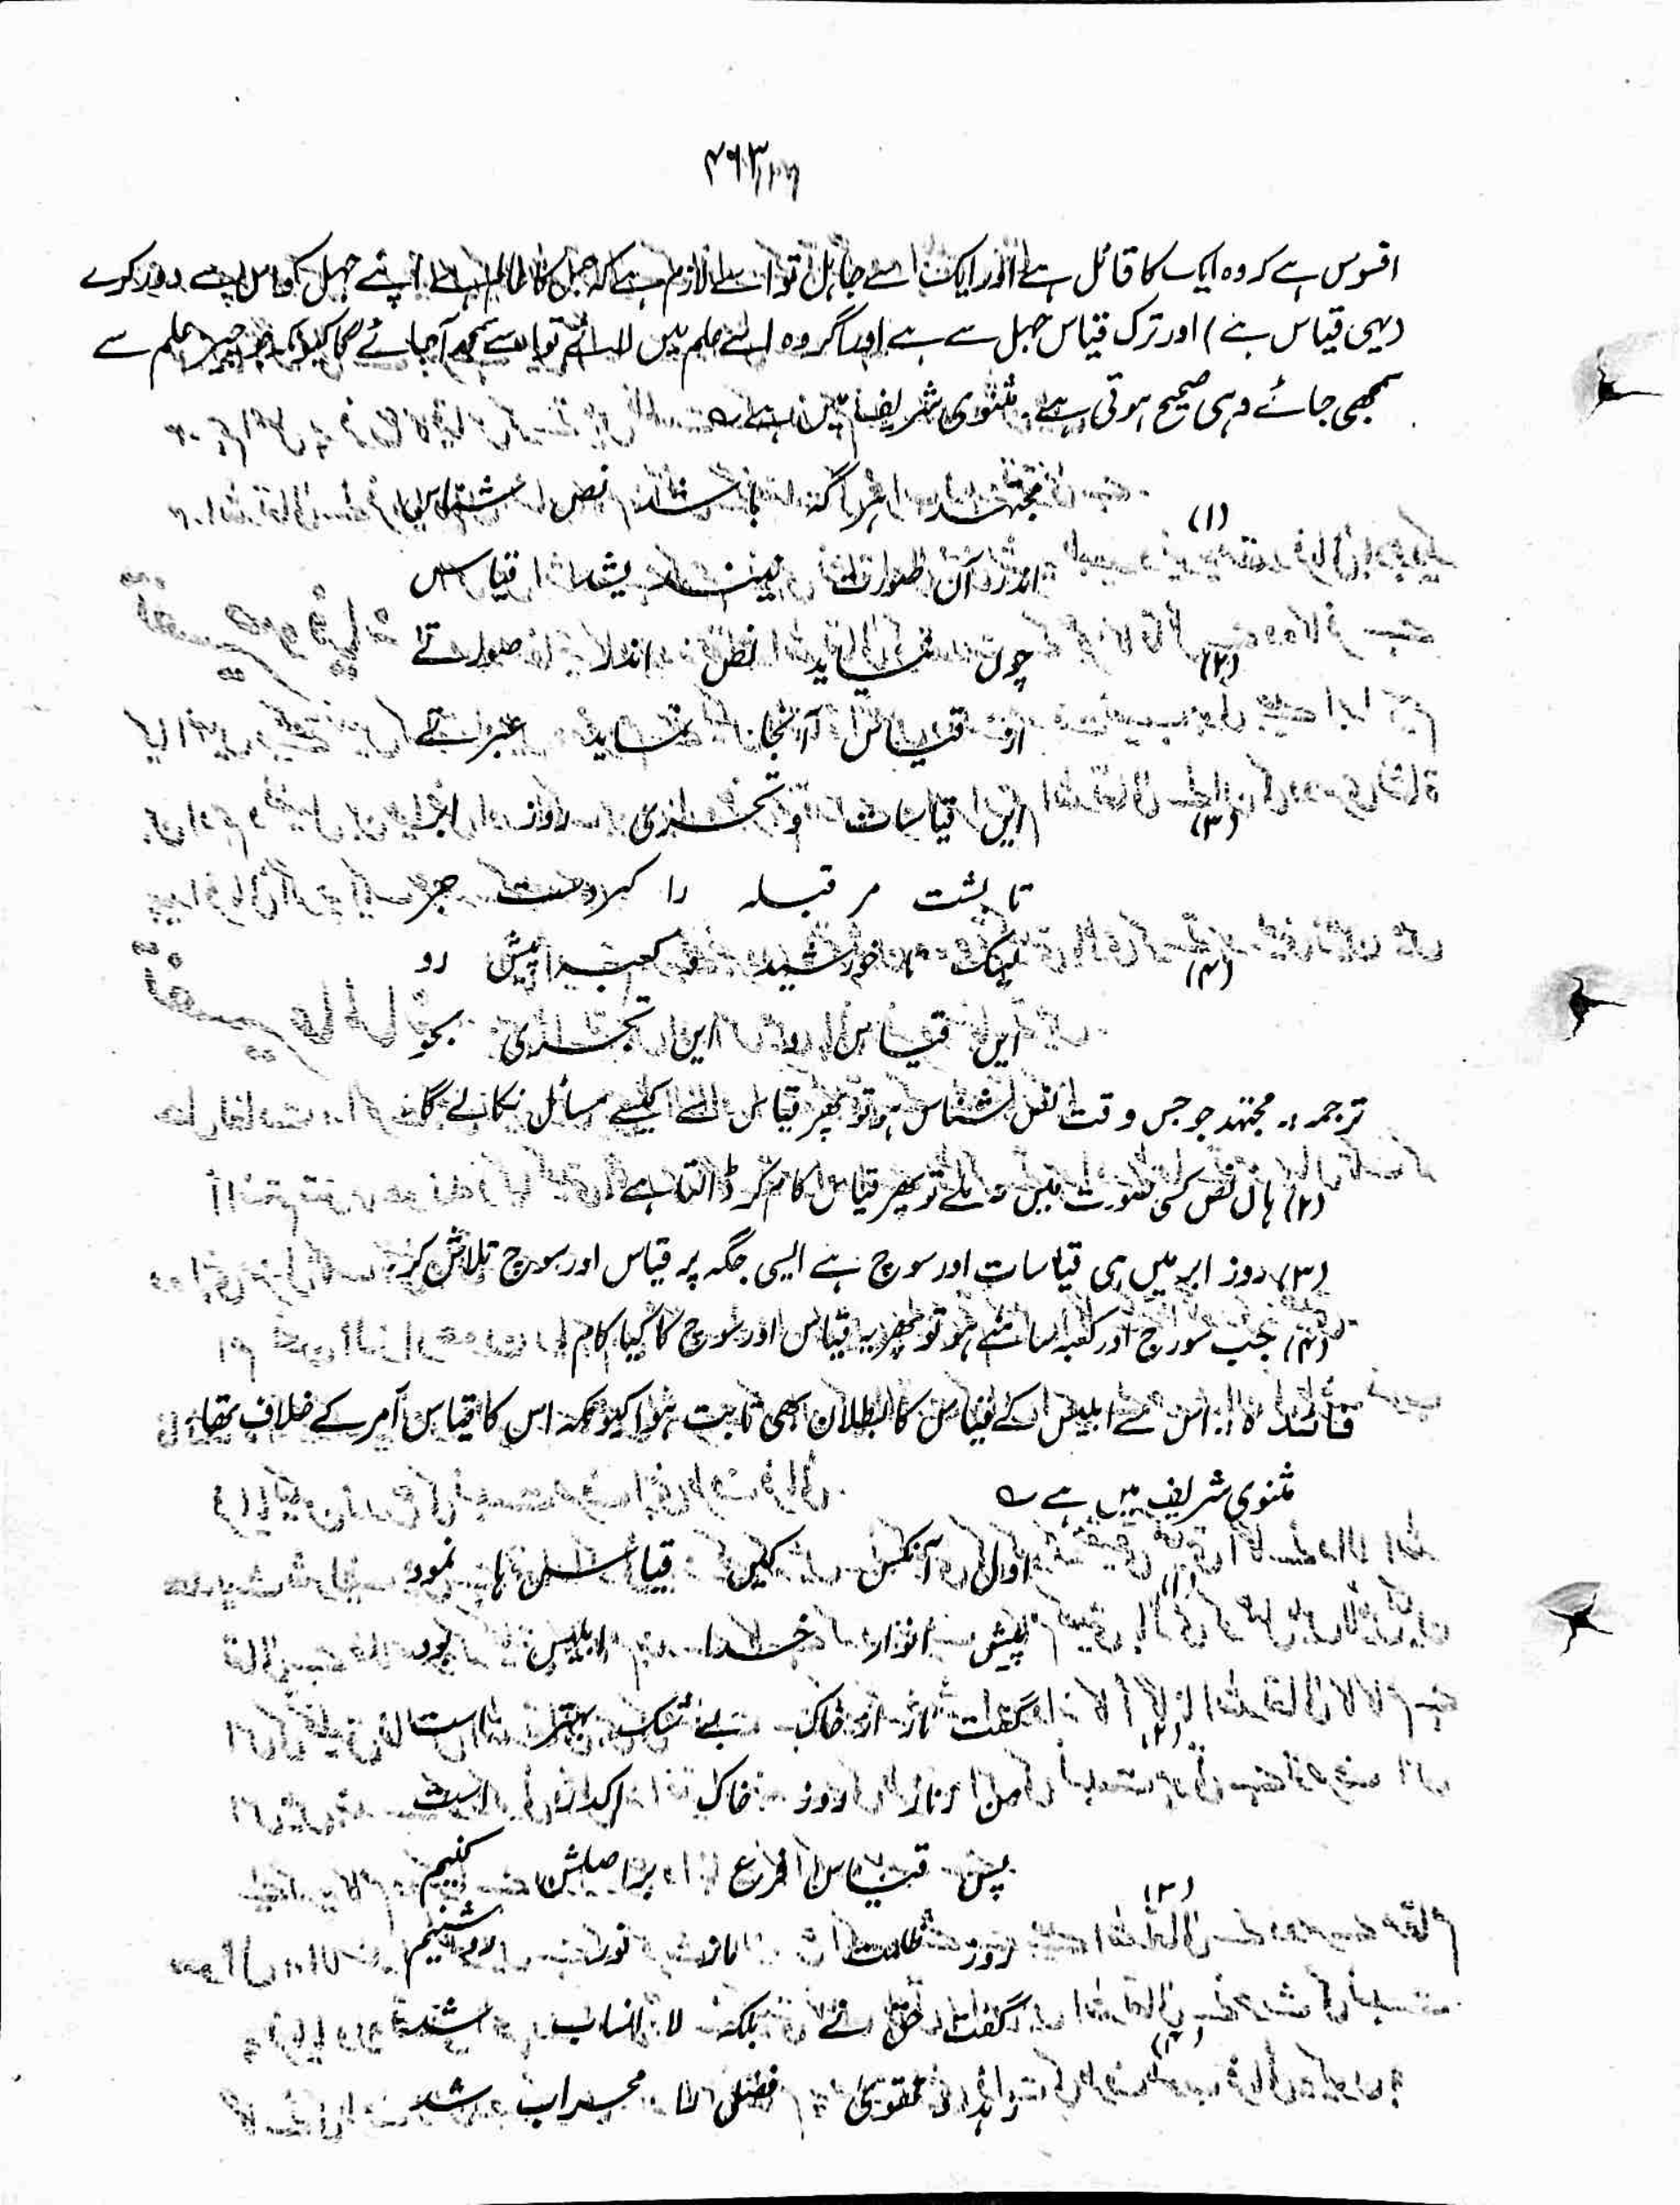 ۴۶۳
افسوس ہے کہ وہ ایک کا قائل ہے اور ایک سے جاہل تو اسے لازم ہے کہ جہل کا عالم اپنے جہل کو اس سے دور کرے
(یہی قیاس ہے) اور ترک قیاس جہل سے ہے اور اگر وہ اسے علم میں لائے تو اسے سمجھ آجائے گا کیونکہ جو چیز علم سے
سمجھی جائے وہی صحیح ہوتی ہے۔ مثنوی شریف میں ہے ؎
(۱) مجتہد ہر گہ باشد نص شناس
اندر آں صورت نیندیشد قیاس
(۲) چوں نیابد نص اندر صورتے
از قیاس آنجا نماید عبرتے
(۳) ایں قیاسات و تحری روز ابر
تا بشب مر قبلہ را کردست جبر
(۴) لیک با خورشید و کعبہ پیش رو
ایں قیاس و ایں تحری مجو
ترجمہ :۔ مجتہد جو جس وقت نص شناس ہو تو پھر قیاس سے کیسے مسائل نکالے گا
(۲) ہاں نص کسی صورت میں نہ ملے تو پھر قیاس کام کر ڈالتا ہے
(۳) روز ابر میں ہی قیاسات اور سوچ ہے ایسی جگہ پر قیاس اور سوچ تلاش کر
(۴) جب سورج اور کعبہ سامنے ہو تو پھر یہ قیاس اور سوچ کا کیا کام
فائدہ :۔ اس سے ابلیس کے قیاس کا بطلان بھی ثابت ہوا کیونکہ اس کا قیاس امر کے خلاف تھا۔
مثنوی شریف میں ہے ؎
(۱) اول آنکس کیں قیاسہا نمود
پیش انوار خدا ابلیس بود
(۲) گفت نار از خاک بے شک بہتر است
من ز نار و او ز خاک اکدر است
(۳) پس قیاس فرع بر اصلش کنیم
او ز ظلمت ما ز نور روشنیم
(۴) گفت حق نے بلکہ لا انساب شد
زہد و تقویٰ فضل را محراب شد